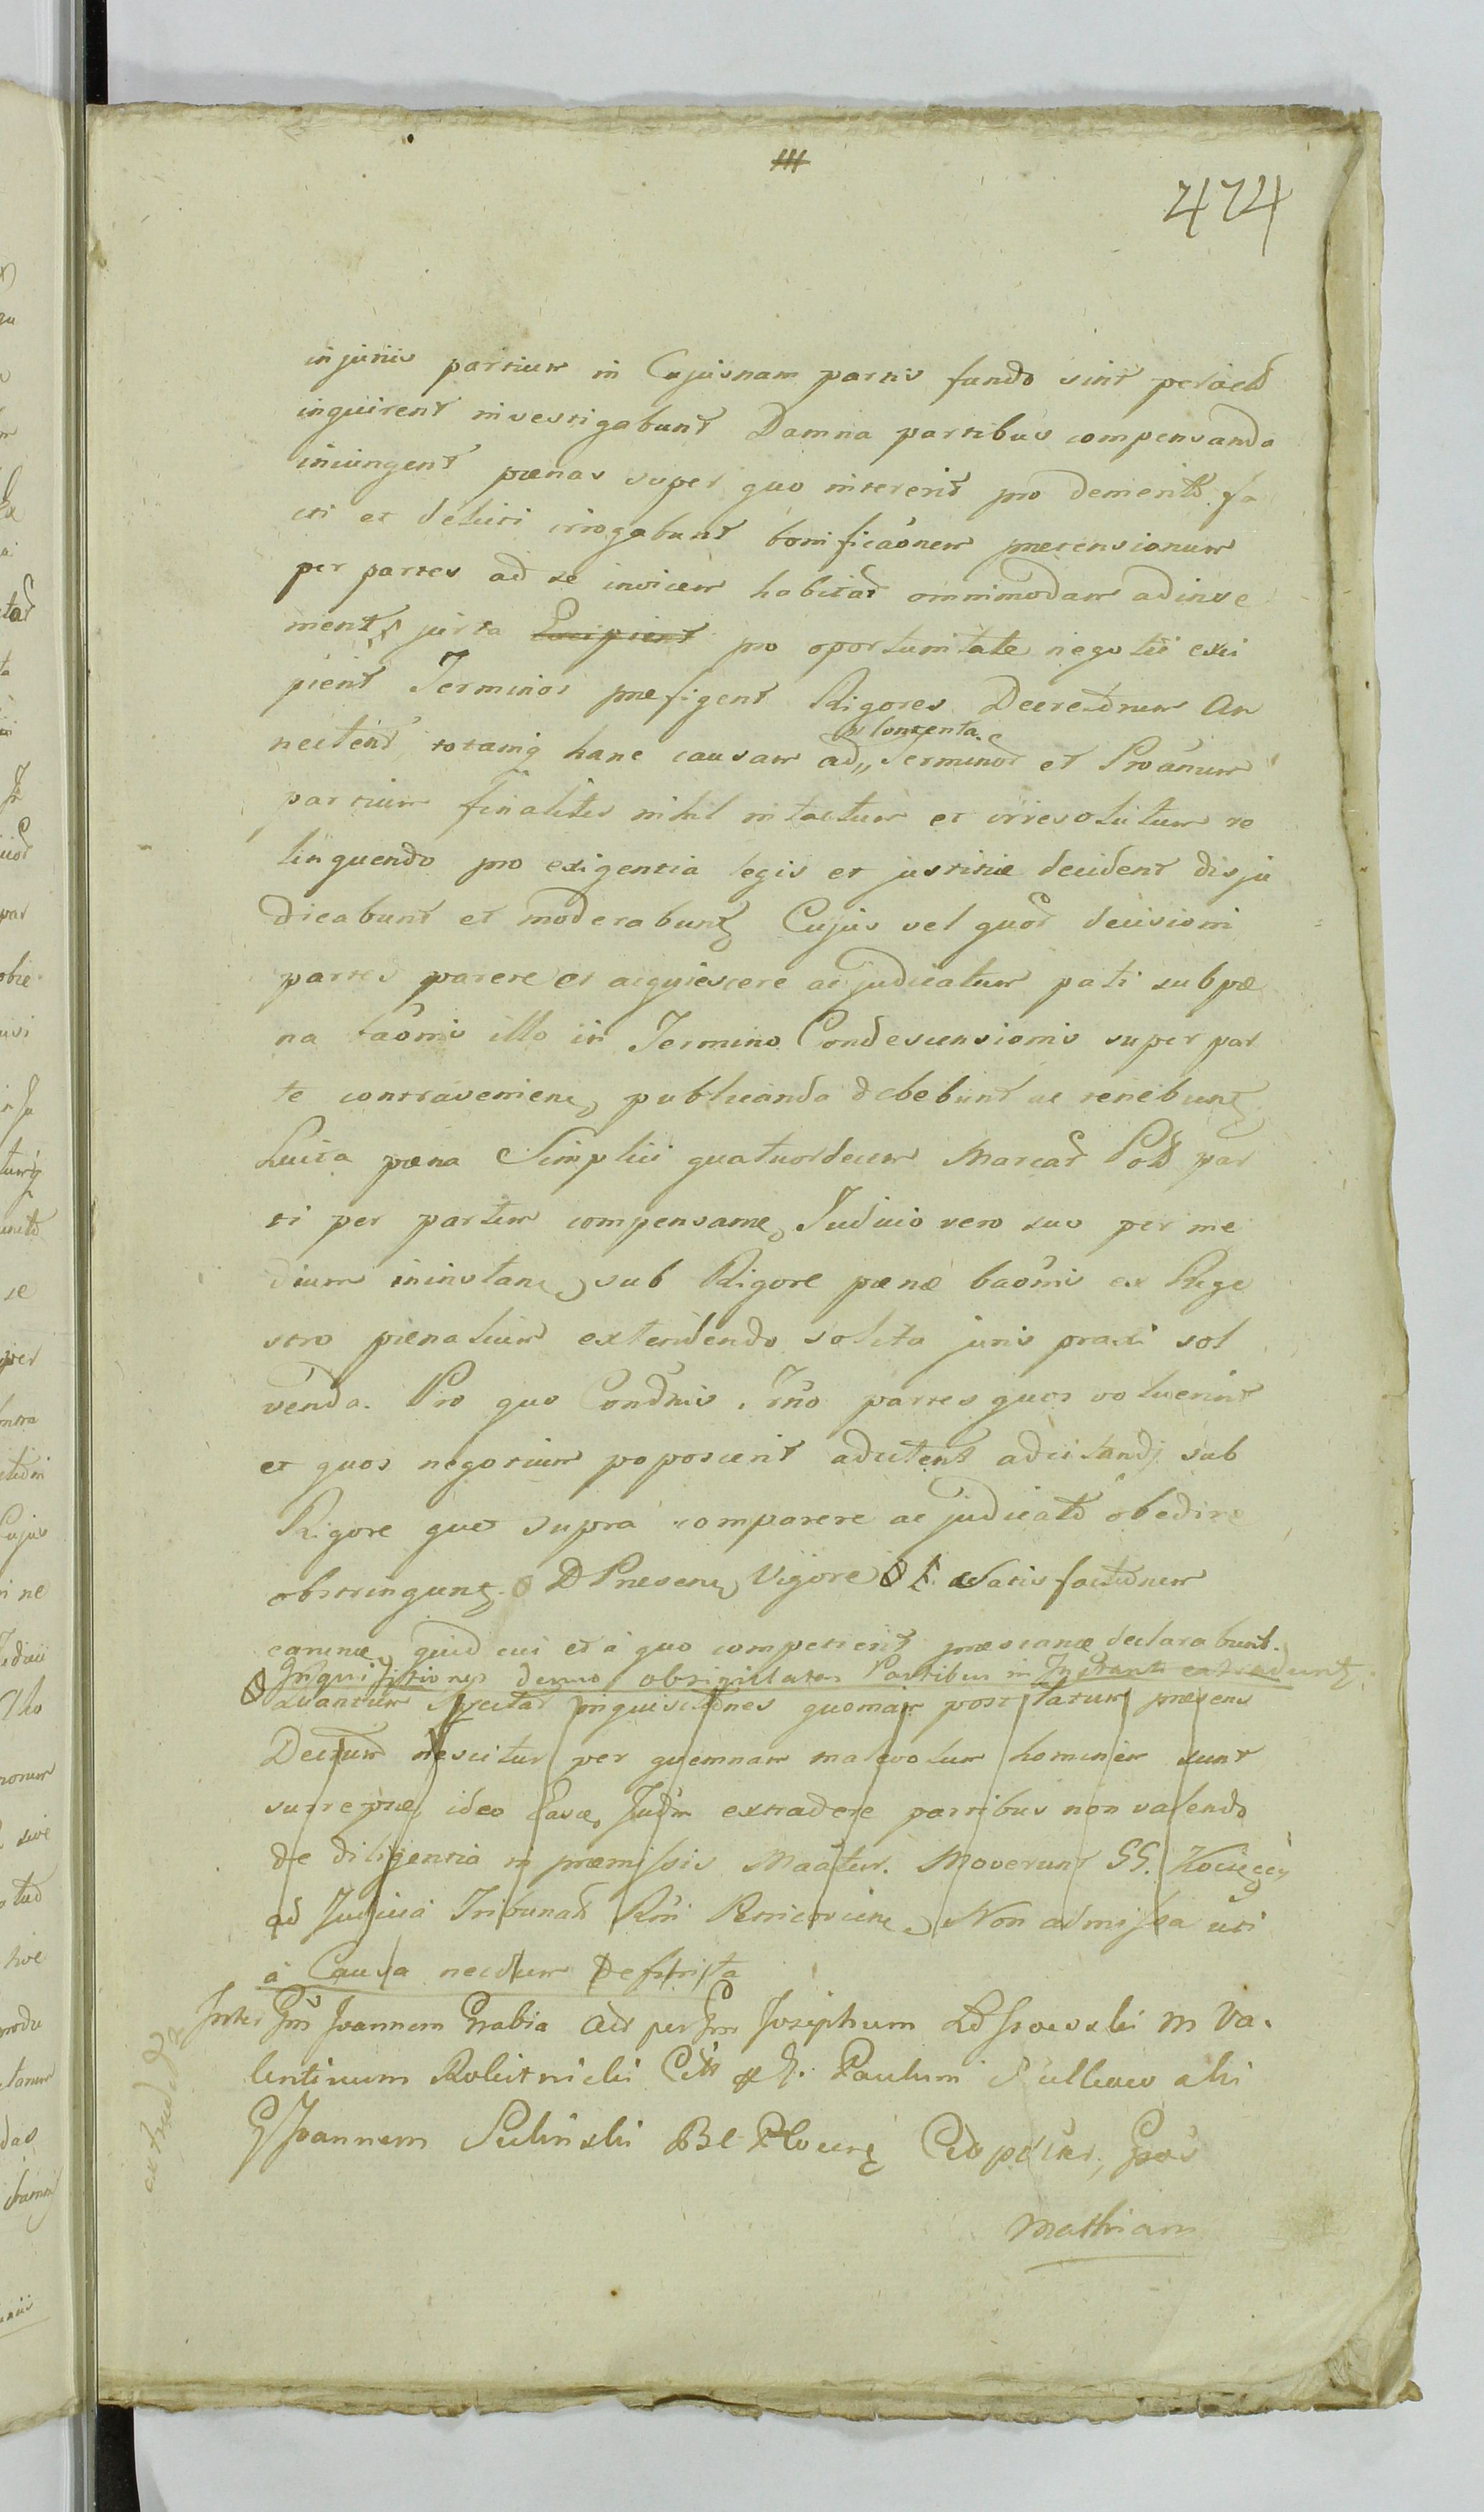 474
injuriis partium in Cujusnam partis fundo sint
inquirent investigabunt Damna partibus compensanda
iniungent pœnas super quo intererit pro demerito fa
cti et delicti irrogabunt bonificaõnem prætensionum
per partes ad se invicem habitar omnimodam adinve
nient, juxta Excipient pro oportunitate negotii exci
pient Terminos præfigent Rigores Decretorum An
nectent, totamq hanc causam ad contenta Terminor et Proãnum
partium finaliter nihil intactum et irresolutum re
linquendo pro exigentia legis et justitiæ decident disju
dicabunt et moderabunt Cujus vel quor decisioni
partes parere et acquiescere ac judicatum pati sub pœ
na baõnis illo in Termino Condescensionis super par
te contravenien publicanda debebunt ac tenebunt
Luita pœna Simplici quatuordecim Marcar Pol par
ti per partem compensanæ Judicio vero suo per me
dium ininstan, sub Rigore pœnæ baõnis ex Rege
stro pœnalium extendendo solita juris praxi sol
venda. Pro quo Condnis Trño partes quos voluerint
et quos negotium poposcerit adcitent adcitandi sub
Rigore quo supra comparere ac judicato obedire
obstringunt. Presen Vigore Satisfactionem
earum quid cui et à quo competierit præviam declarabunt.
Inquisitiones denuo obsigillatas Partibus in Instanti extradunt
Quantum spectat inquisitiones quoniam post latum præsens
Decretum nescitur per quemnam malevolum hominem sunt
surreptæ, ideo Easæ Judm extradere partibus non valendo
de diligentia in præmissis Maãtur. Moverunt GG. Kocięccy
ad Judicia Tribunal Rñi Non admissa uti
à Causa necdum Defsinita
Inter Gm Joannem Grabia Act per Gm Josephum in Va.
lentinum Robitnicki Cit et G. Paulum
G Joannem Suliński Bl Plocen
Mathiam